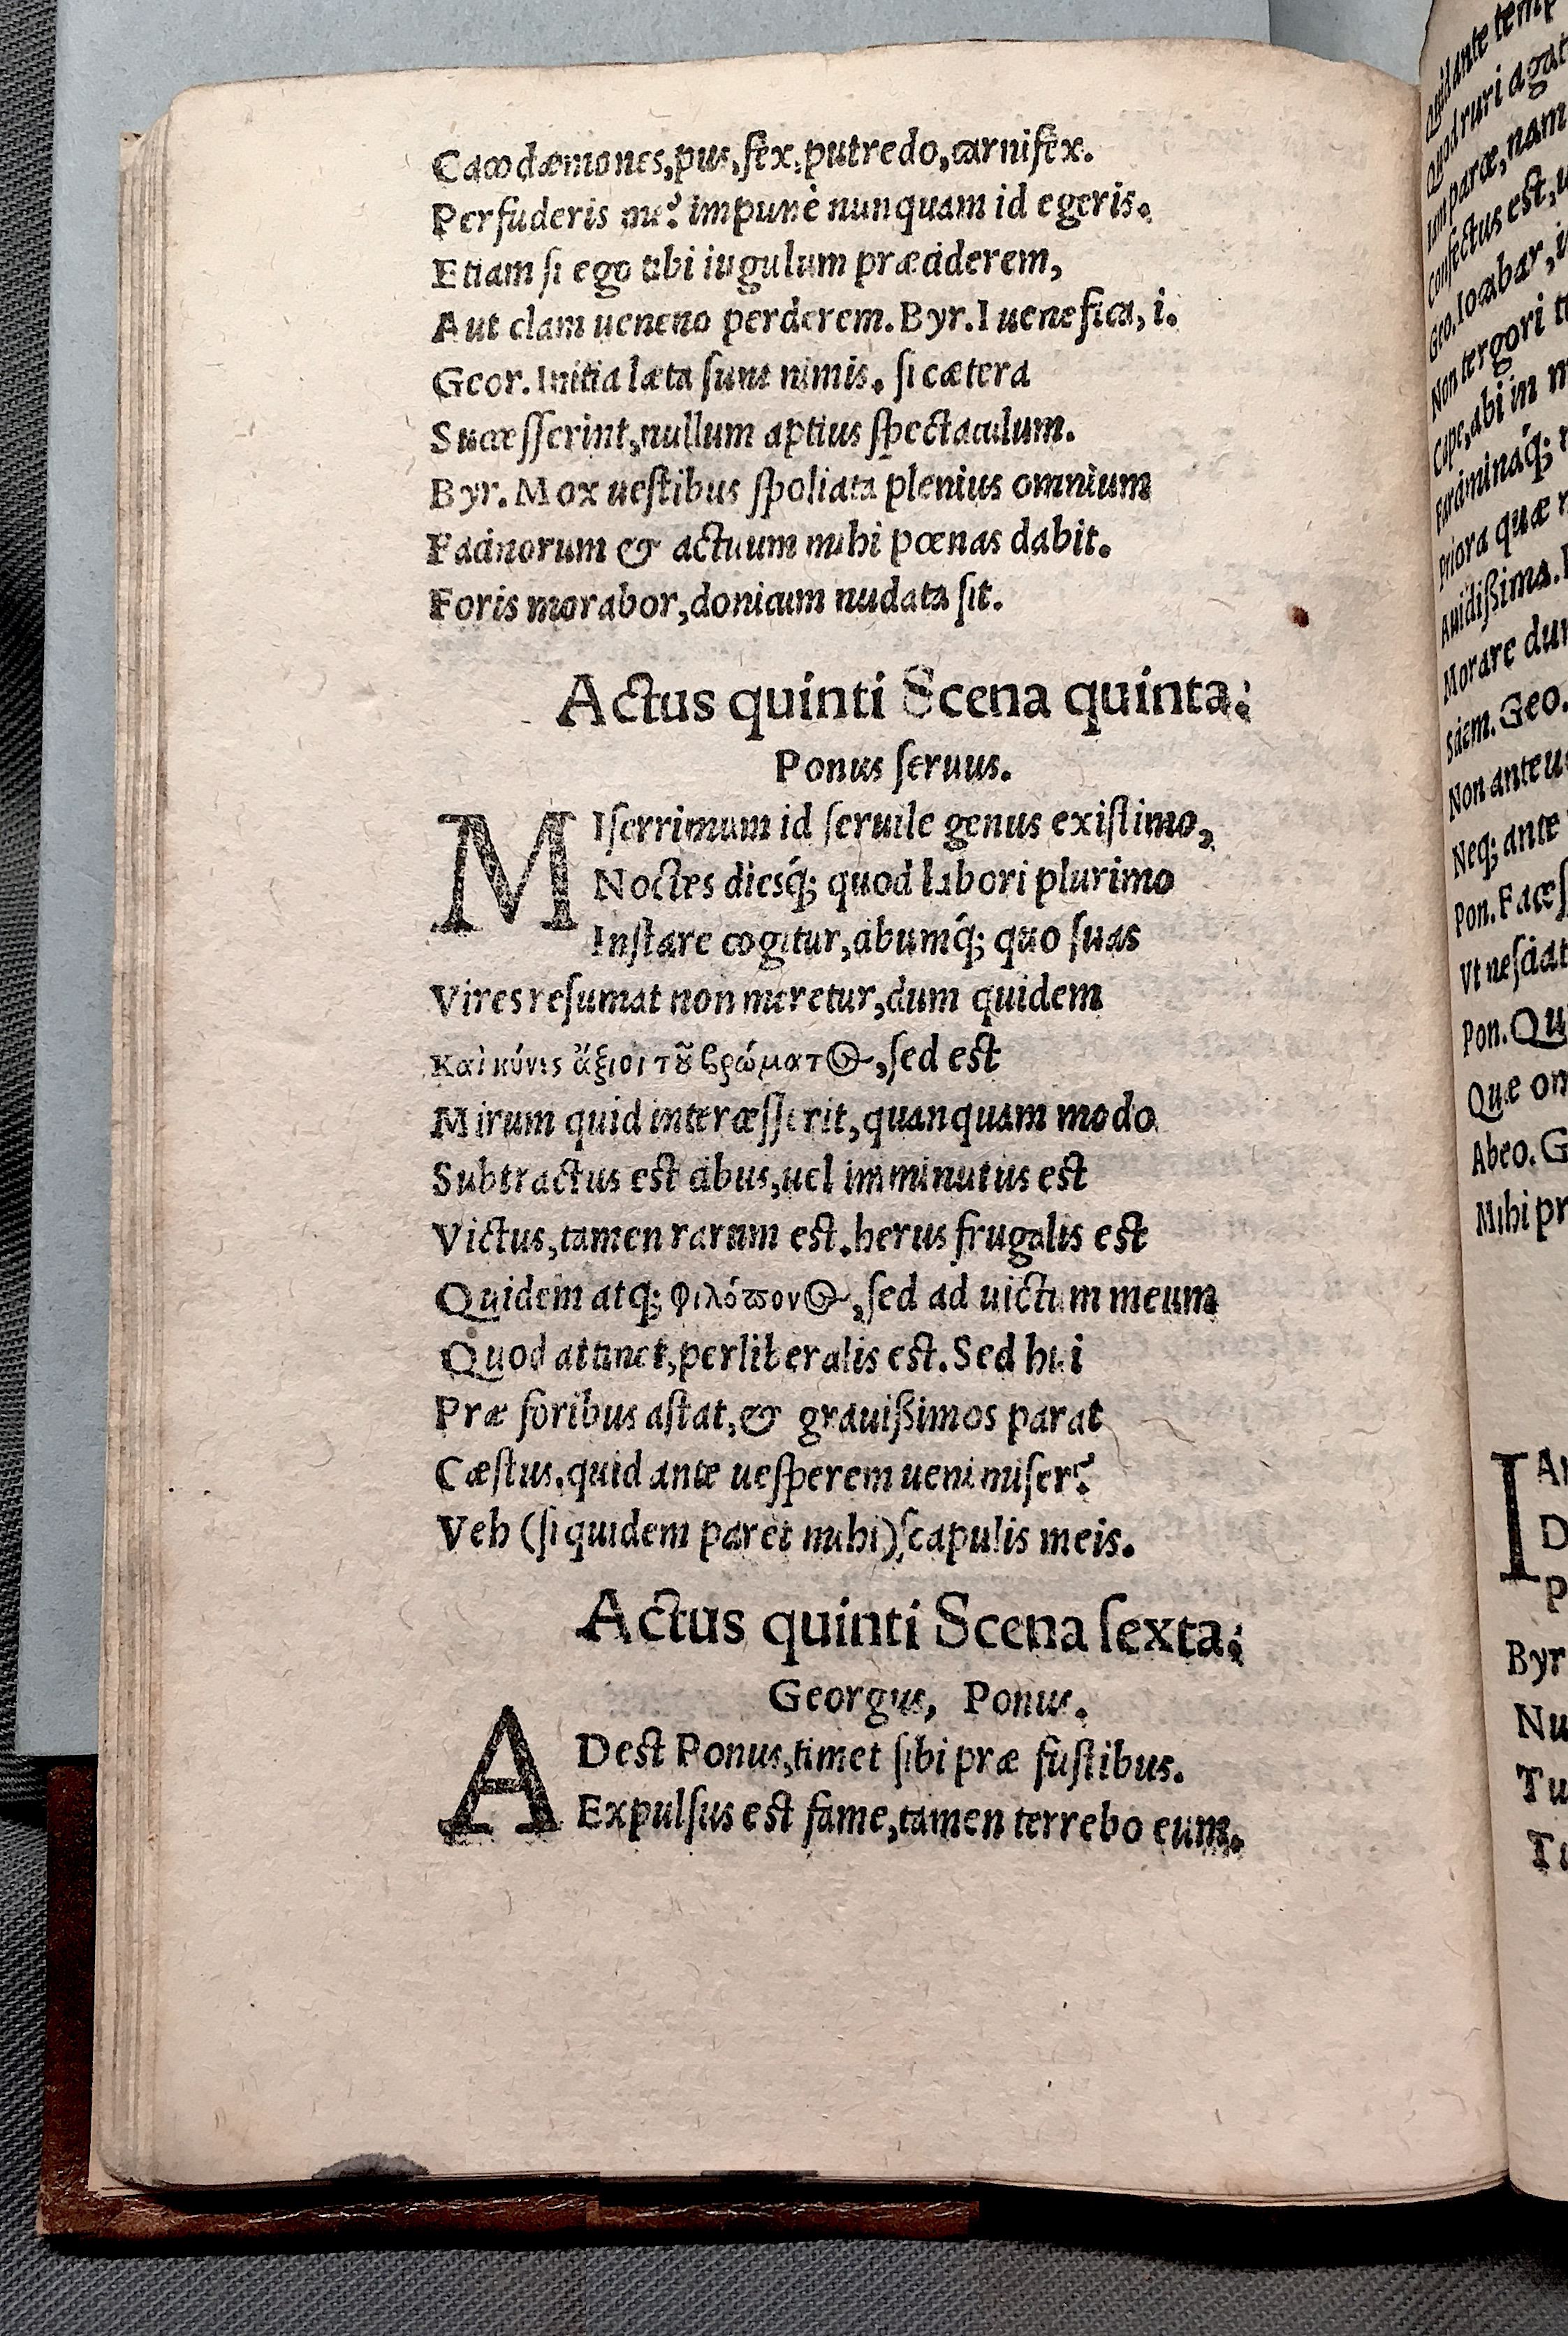 Cacodæmones,pus,fex,putredo,carnifex.
Perfuderis me? impunè nunquam id egeris.
Etiam ſi ego tibi iugulum præciderem,
Aut clam ueneno perderem. Byr. I uenefica, i.
Geor. Initia læta ſunt nimis, ſi cætera
Succeſſerint,nullum aptius ſpectaculum.
Byr. Mox ueſtibus ſpoliata plenius omnium
Facinorum & actuum mihi pœnas dabit.
Foris morabor,donicum nudata ſit.
Actus quinti Scena quinta:
Ponus ſeruus.
MIſerrimum id ſeruile genus exiſtimo,
Noctes diesq́; quod labori plurimo
Inſtare cogitur,cibumq́; quo ſuas
Vires reſumat non meretur,dum quidem
Καὶ κύνες ἄξιοι τȣ͂ βρώματ⊙,ſed est
Mirum quid interceſſerit,quanquam modo
Subtractus est cibus,uel imminutus est
Victus,tamen rarum est.herus frugalis est
Quidem atq; φιλόπον⊙,ſed ad uictum meum
Quod attinet,perliberalis est. Sed hui
Præ foribus aſtat,& grauiſsimos parat
Cæſtus.quid ante ueſperem ueni miſer?
Veh (ſi quidem paret mihi)ſcapulis meis.
Actus quinti Scena ſexta:
Georgus, Ponus.
ADest Ponus,timet ſibi præ fuſtibus.
Expulſus est fame,tamen terrebo eum.
Quid ante temp
Quod ruri agat
Ium paræ,nam
Confectus est,u
Geo. Iocabar,i
Non tergori t
Cape,abi in m
Farciminaq́;
Priora quæ
Auidiſsima.
Morare dum
Saem. Geo.
Non anteu
Neq; ante
Pon. Faceſ
Vt neſciat
Pon. Qu
Quæ om
Abeo. G
Mihi pr
IA
D
P
Byr
Nu
Tu